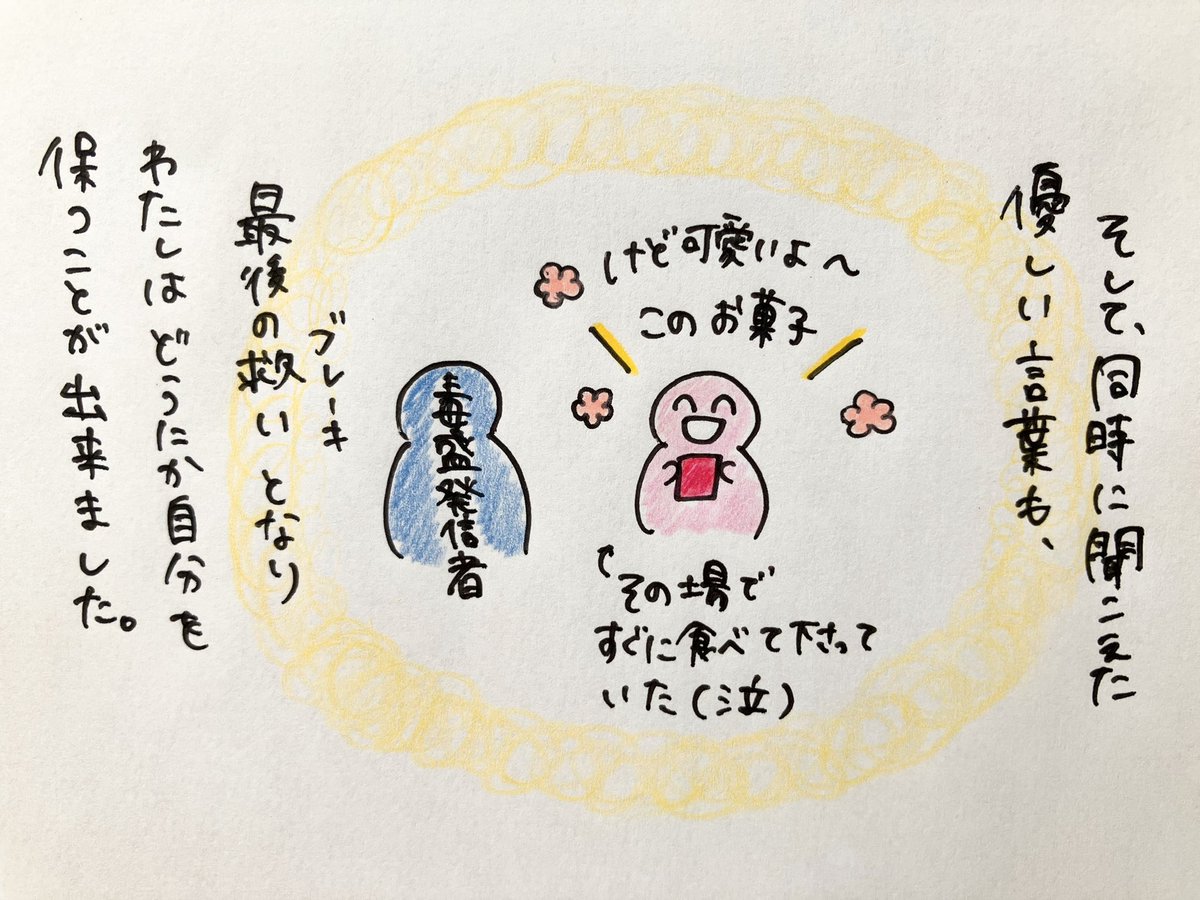 そして、同時に聞こえた
優しい言葉も、
けど可愛いよ〜
このお菓子
その場で
すぐに食べて下さって
いた(泣)
毒盛発信者
ブレーキ
最後の救いとなり
わたしはどうにか自分を
保つことが出来ました。